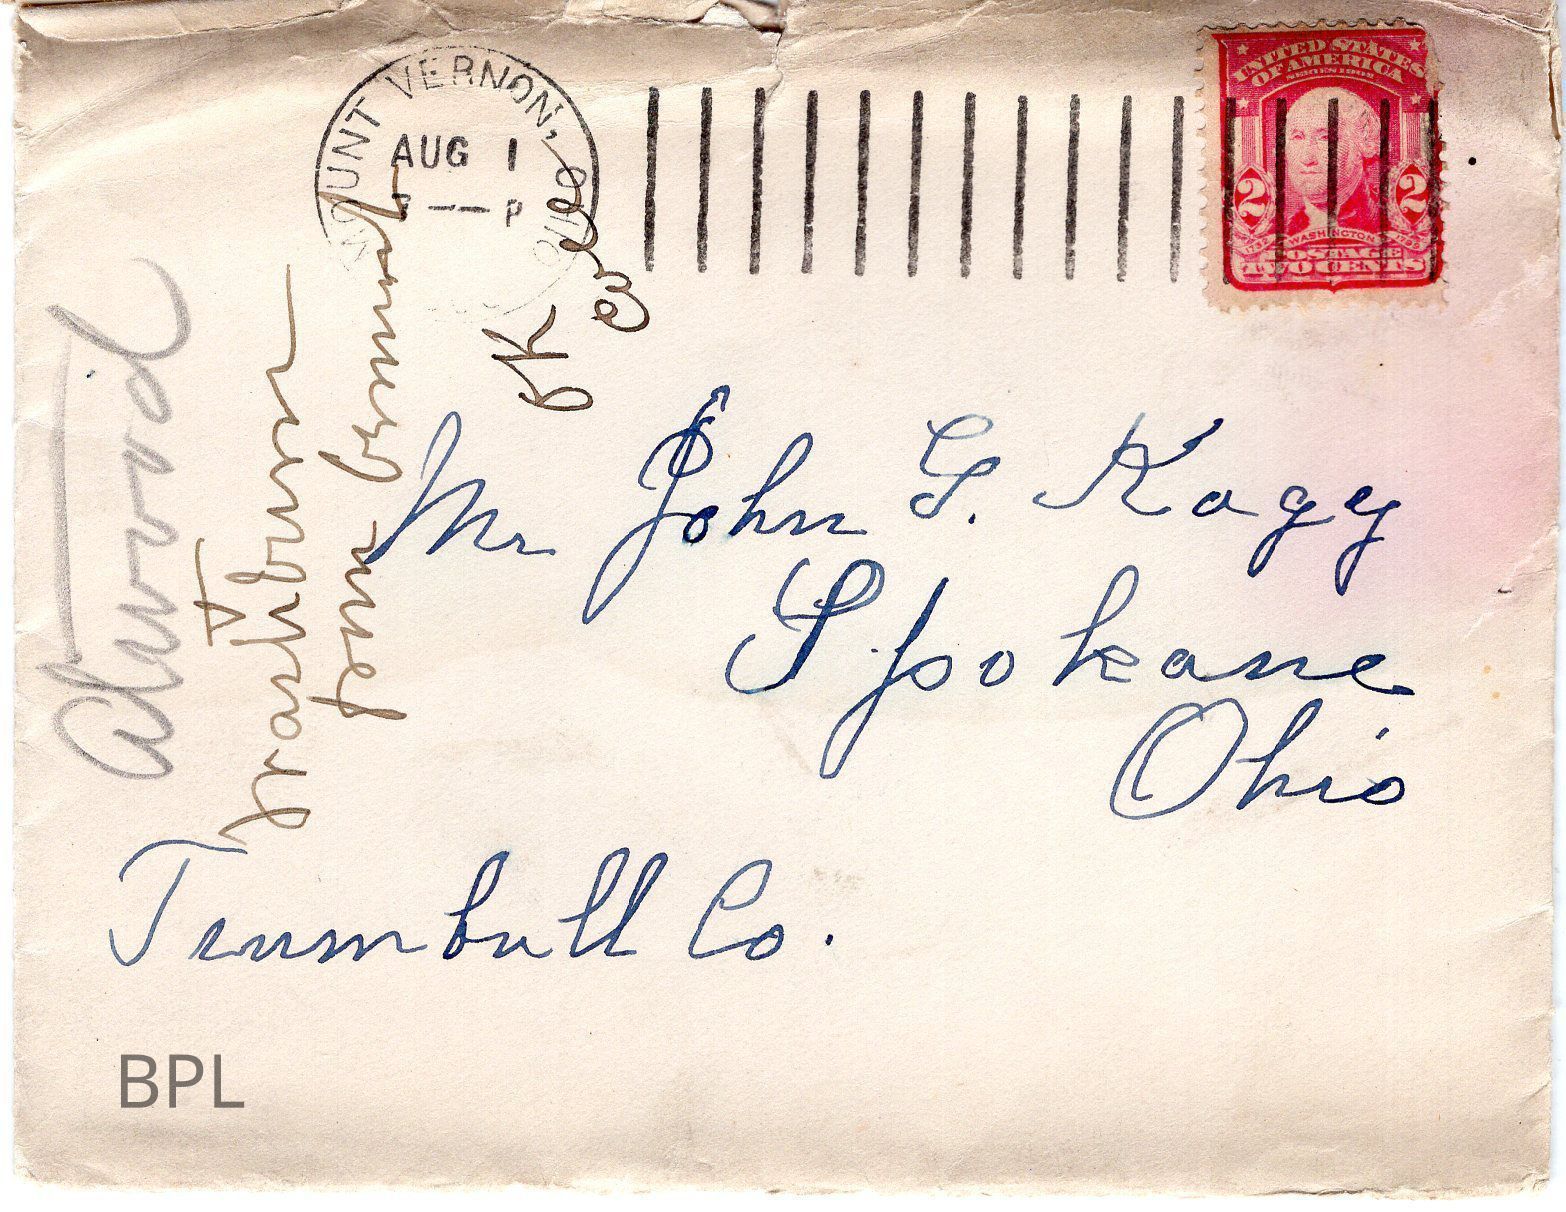 MOUNT VERNON, OHIO
AUG 1
— P
UNITED STATES
OF AMERICA
SERIES 1902
2 2
1732 WASHINGTON 1799
POSTAGE
TWO CENTS
Atwood
OK
Mr John G. Kagy
Spokane
Ohio
Trumbull Co.
BPL